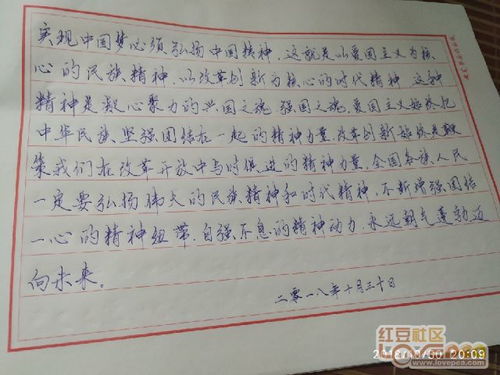 实现中国梦必须弘扬中国精神。这就是以爱国主义为核
心的民族精神，以改革创新为核心的时代精神。这种
精神是凝心聚力的兴国之魂、强国之魂。爱国主义始终把
中华民族坚强团结在一起的精神力量，改革创新始终是鞭
策我们在改革开放中与时俱进的精神力量。全国各族人民
一定要弘扬伟大的民族精神和时代精神，不断增强团结
一心的精神纽带、自强不息的精神动力，永远朝气蓬勃迈
向未来。
二零一八年十月三十日
红豆社区
www.lovepea.com
20:09